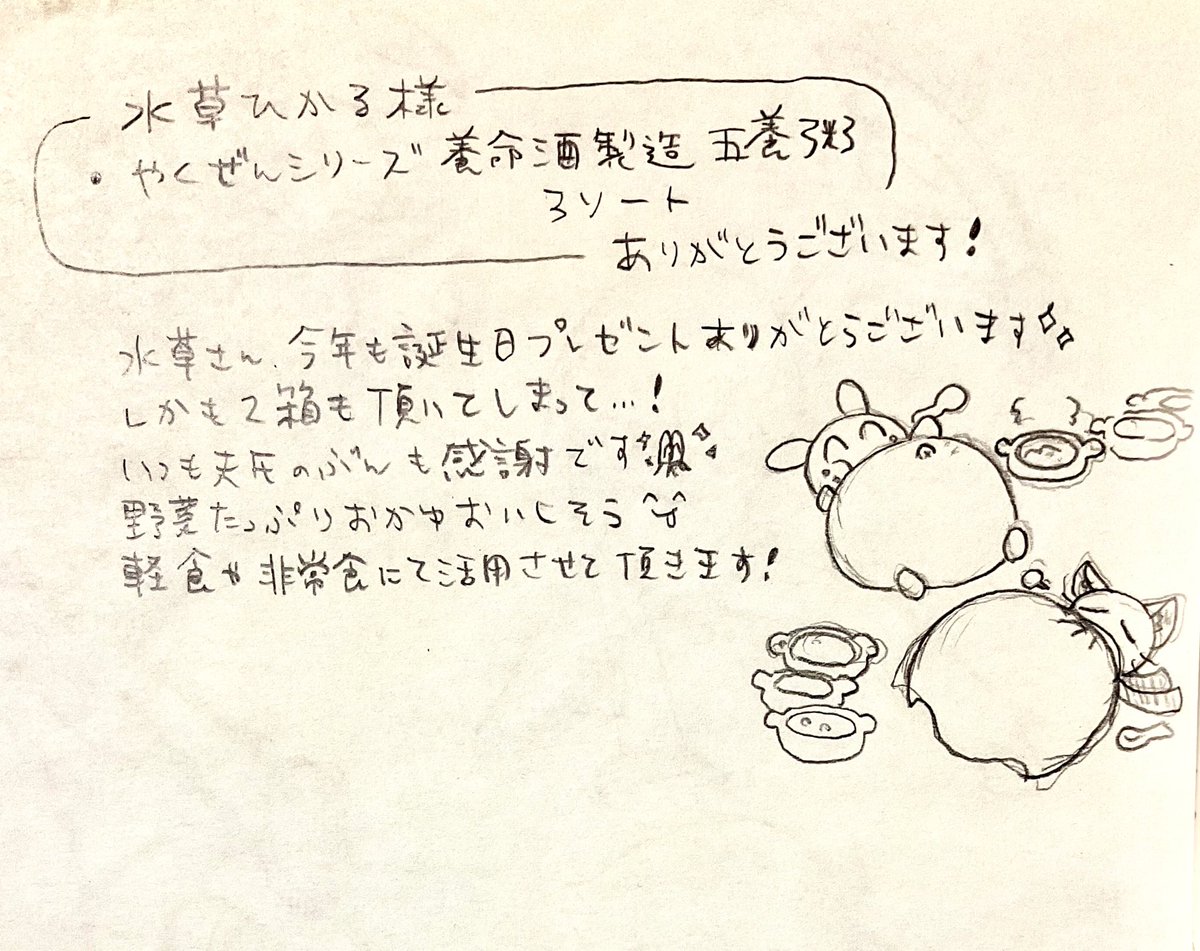 水草ひかる様
・やくぜんシリーズ 養命酒製造 五養粥
3ソート
ありがとうございます!
水草さん、今年も誕生日プレゼントありがとうございます
しかも2箱も頂いてしまって…!
いつも夫のぶんも感謝です
野菜たっぷりおかゆおいしそう
軽食や非常食にて活用させて頂きます!